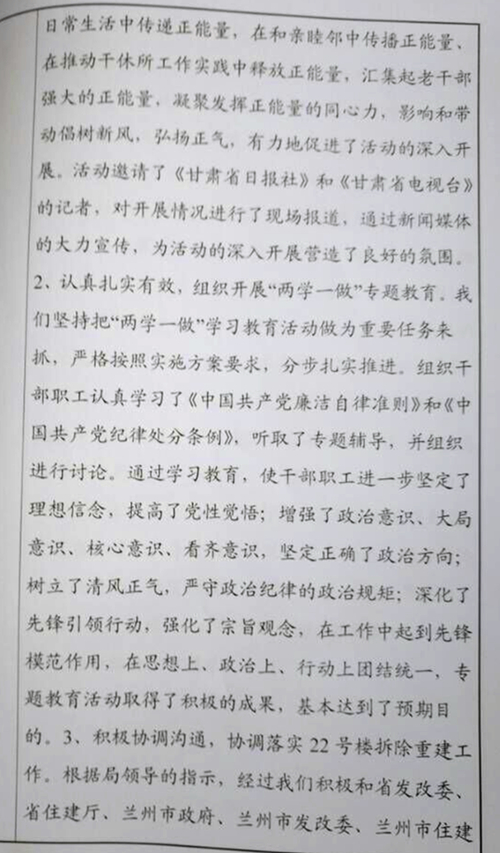 日常生活中传递正能量，在和亲睦邻中传播正能量、
在推动干休所工作实践中释放正能量，汇集起老干部
强大的正能量，凝聚发挥正能量的同心力，影响和带
动倡树新风，弘扬正气，有力地促进了活动的深入开
展。活动邀请了《甘肃省日报社》和《甘肃省电视台》
的记者，对开展情况进行了现场报道，通过新闻媒体
的大力宣传，为活动的深入开展营造了良好的氛围。
2、认真扎实有效，组织开展“两学一做”专题教育。我
们坚持把“两学一做”学习教育活动做为重要任务来
抓，严格按照实施方案要求，分步扎实推进。组织干
部职工认真学习了《中国共产党廉洁自律准则》和《中
国共产党纪律处分条例》，听取了专题辅导，并组织
进行讨论。通过学习教育，使干部职工进一步坚定了
理想信念，提高了党性觉悟；增强了政治意识、大局
意识、核心意识、看齐意识，坚定正确了政治方向；
树立了清风正气，严守政治纪律的政治规矩；深化了
先锋引领行动，强化了宗旨观念，在工作中起到先锋
模范作用，在思想上、政治上、行动上团结统一，专
题教育活动取得了积极的成果，基本达到了预期目
的。3、积极协调沟通，协调落实 22 号楼拆除重建工
作。根据局领导的指示，经过我们积极和省发改委、
省住建厅、兰州市政府、兰州市发改委、兰州市住建